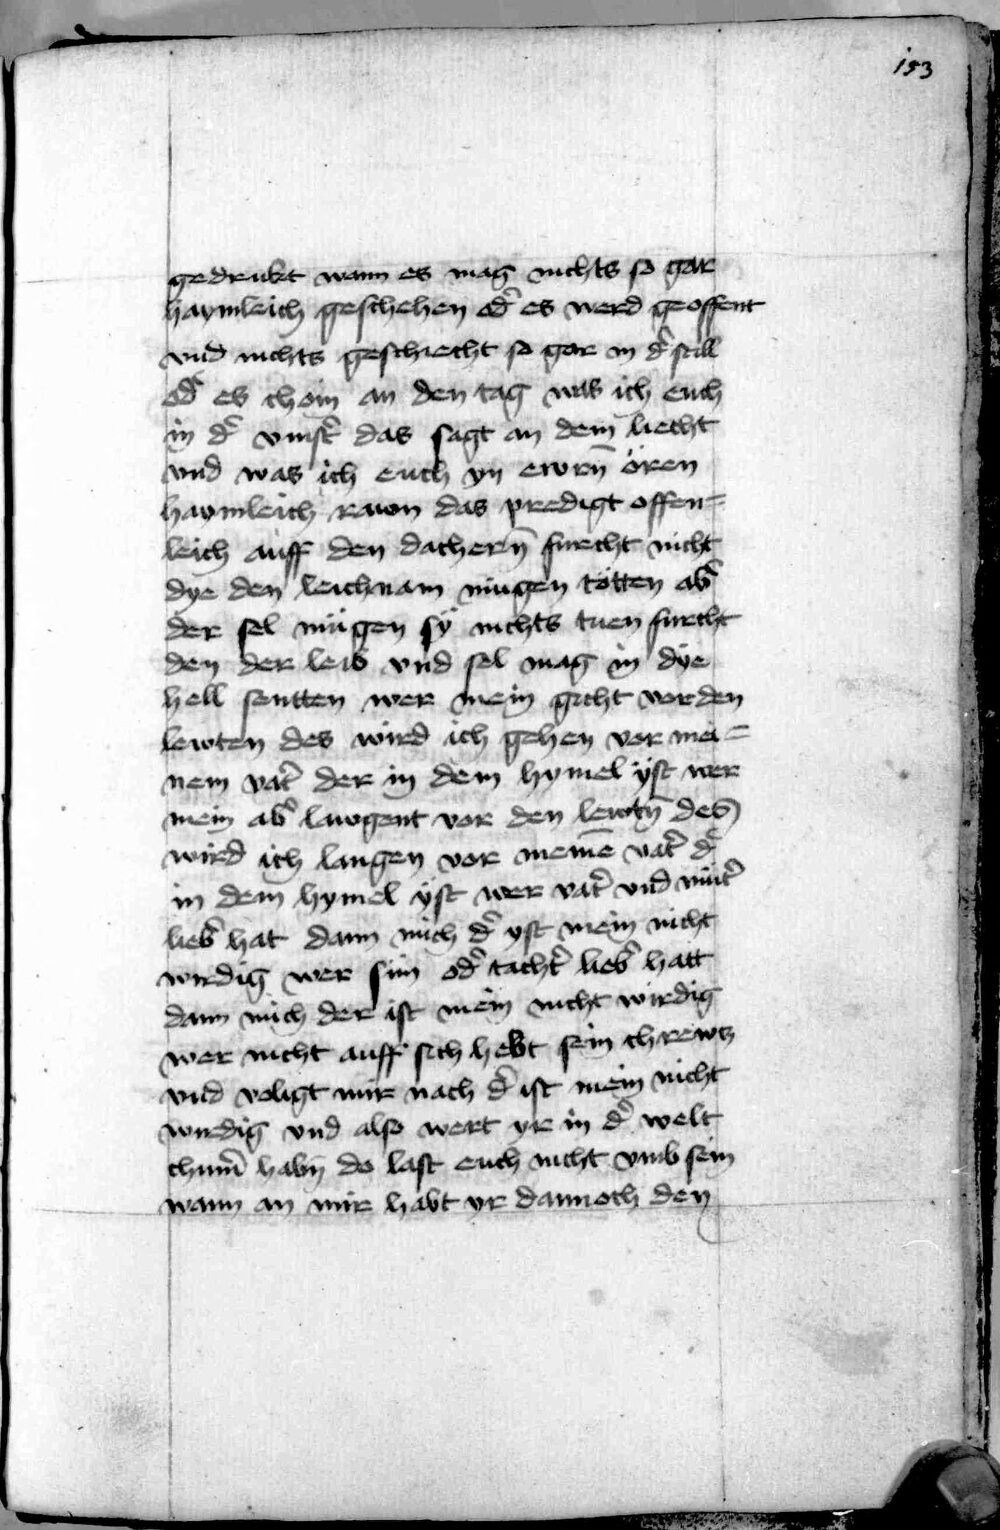 153
gedrukt wann es mag nichts so gar
haymleich geschehen od̄ es werd geoffent
vnd nichts geschiecht so gar in d̄ still
od̄ es chöm an den tag was ich euch
in d̄ vinst̄ das sagt an dem liecht
vnd was ich euch yn ewrn̄ ören
haymleich rawn das predigt offen=
leich auff den dachern̄ furcht nicht
dye den leichnam mügen tötten ab̄
der sel mügen sÿ nichts tuen furcht
den der leib vnd sel mag in dye
hell sentten wer mein gicht vor den
lewten des wird ich gehen vor mei=
nem vat̄ der in dem hymel ÿst wer
mein ab̄ lawgent vor den lewtn̄ des
wird ich laugen vor meinē vat̄ d̄
in dem hymel ÿst wer vat̄ vnd mut̄
lieb̄ hat dann mich d̄ yst mein nicht
wirdig wer sun od̄ tacht̄ lieb̄ hatt
dann mich der ist mein nicht wirdig
wer nicht auff sich hebt sein chrewtz
vnd voligt mir nach d̄ ist mein nicht
wirdig vnd also wert yr in d̄ welt
chum̄ habn̄ do last euch nicht vmb sein
wann an mir habt yr dannoch den